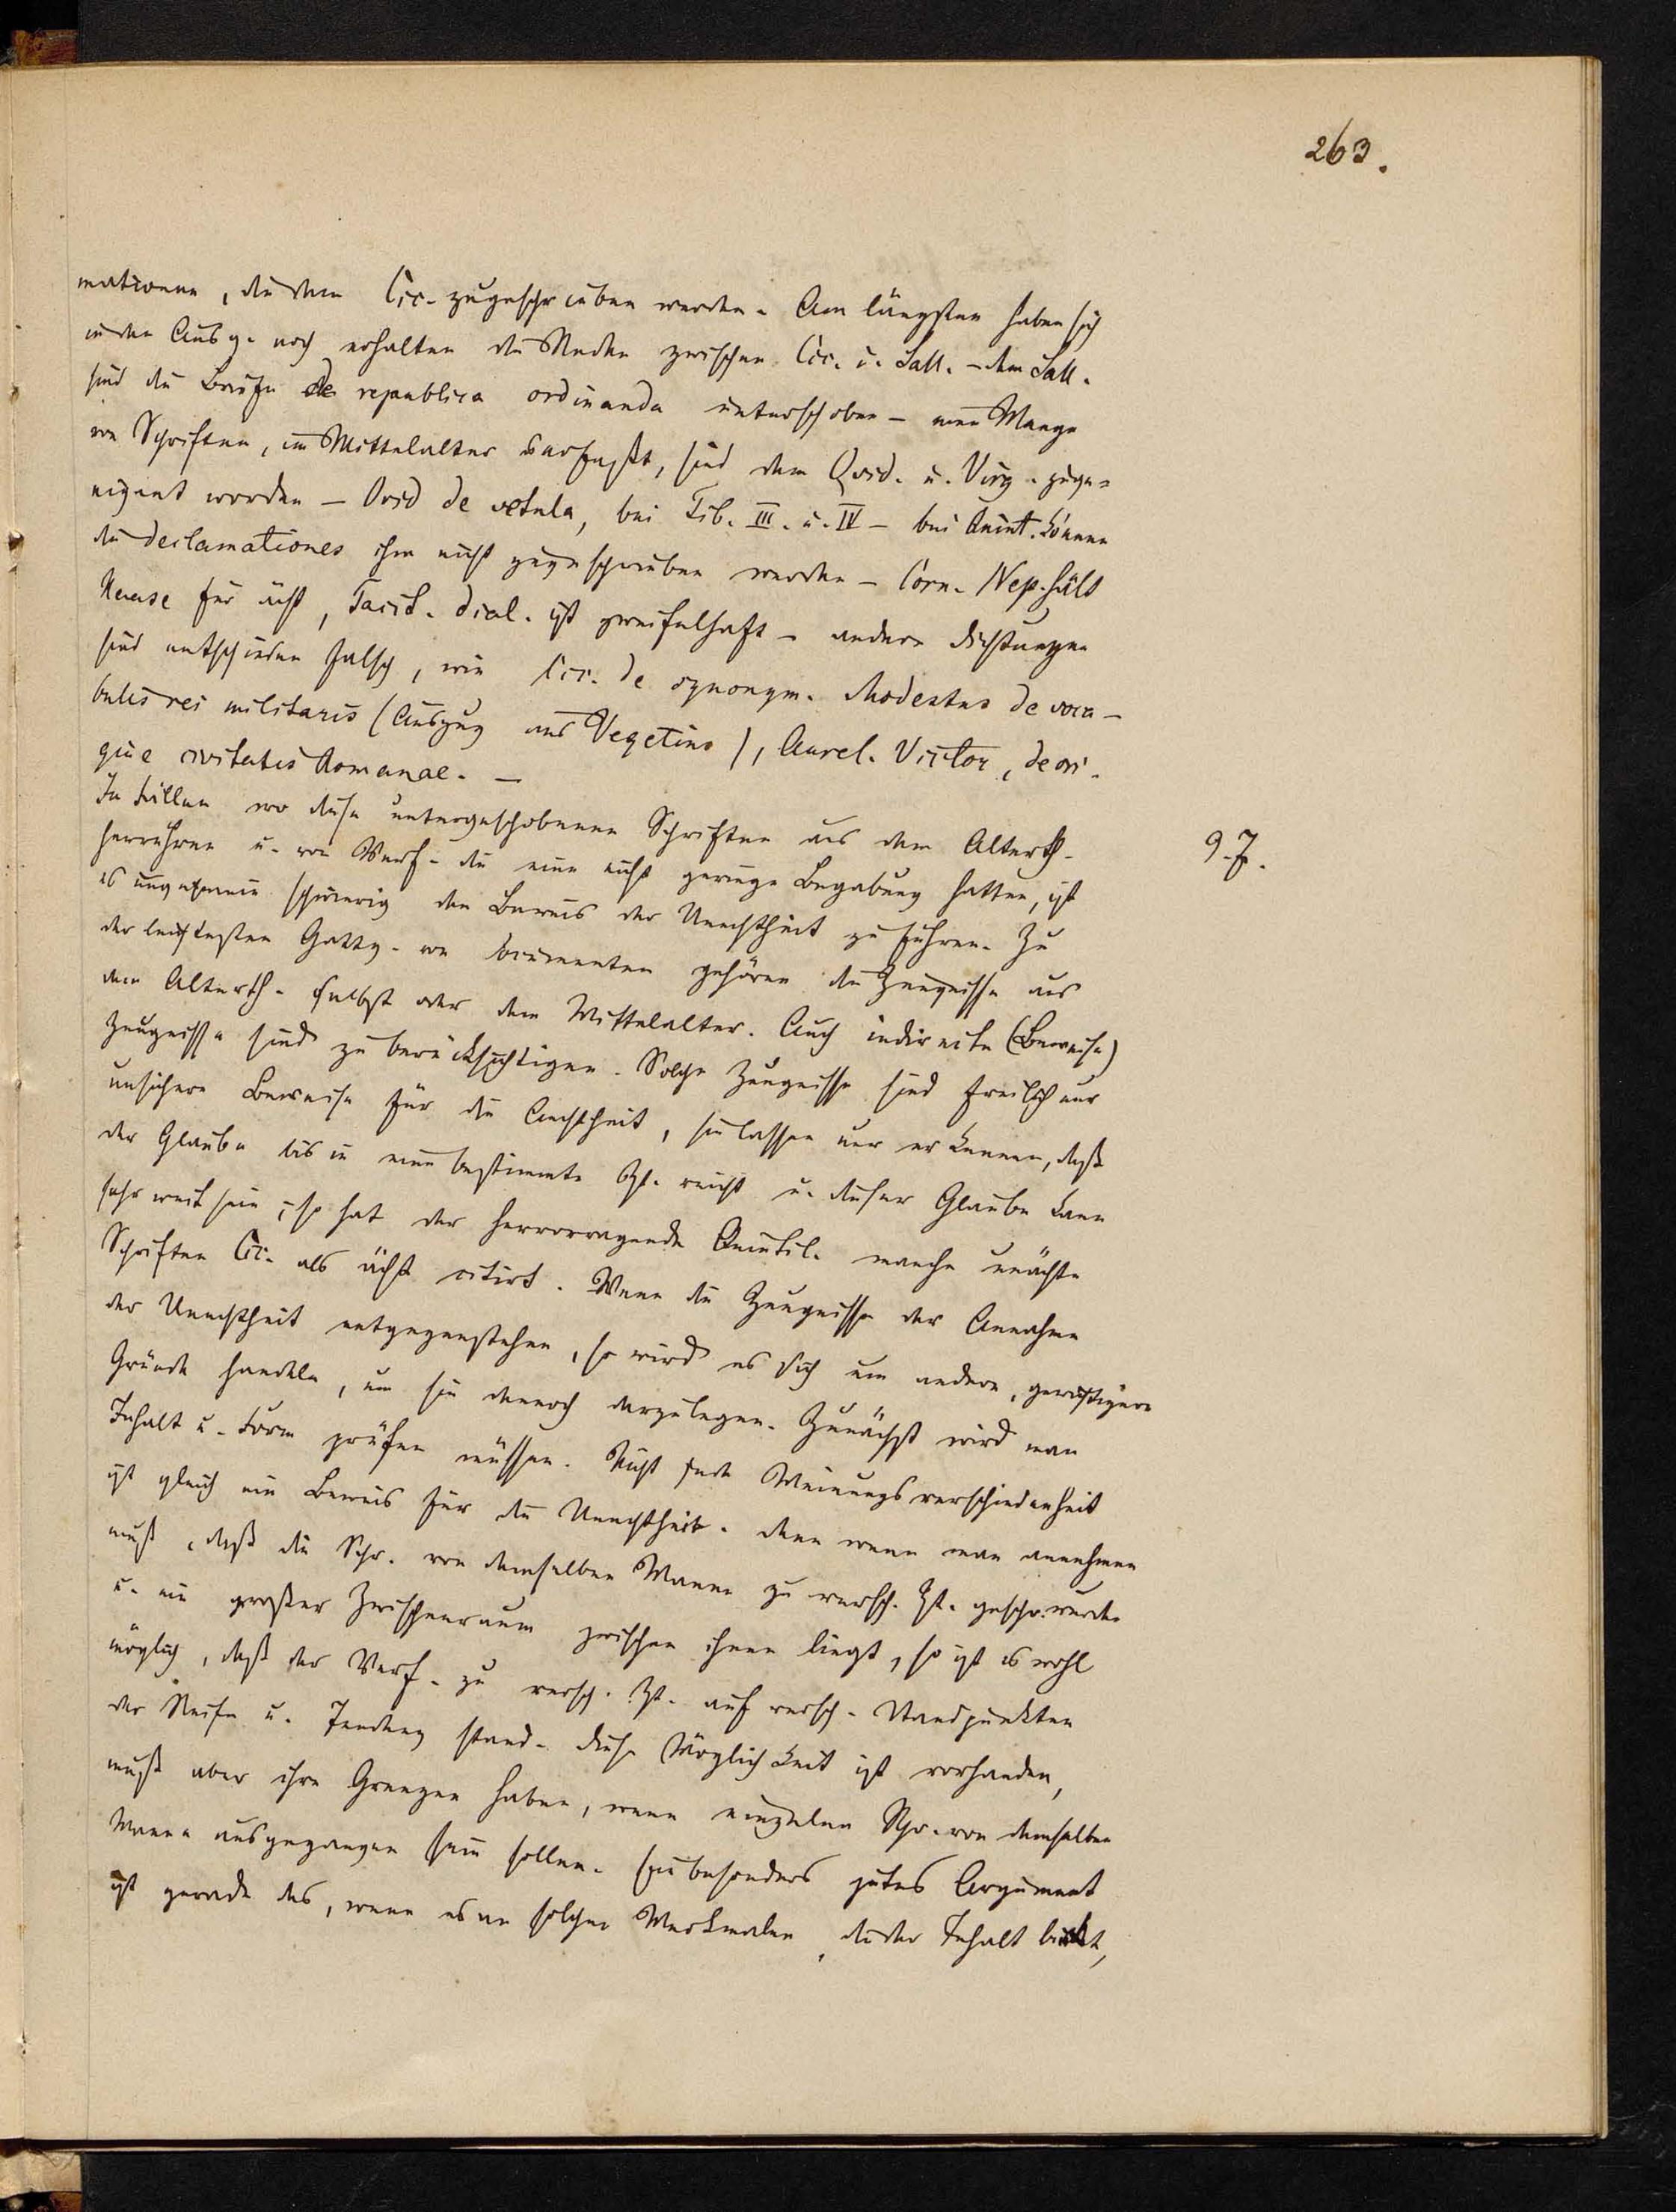 263.
mationen, die dem Cic. zugeschrieben werden. Am längsten haben sich
in den Ausg. noch erhalten die Reden zwischen Cic. u. Sall. – dem Sall.
sind die Briefe de republica ordinanda unterschoben – eine Menge
von Schriften, im Mittelalter verfaßt, sind dem Ovid. u. Virg. zuge=
eignet worden – Ovid de vetula, bei Tib. III. u. IV – bei Quint. können
die declamationes ihm nicht zugeschrieben werden – Corn. Nep. hält
Haase für ächt, Tacit. dial. ist zweifelhaft – andere Dichtungen
sind entschieden falsch, wie Cic. de synonym. Modestus de voca-
bulis rei militaris (Auszug aus Vegetius), Aurel. Victor, de ori-
gine civitatis Romanae. –
In Fällen wo diese untergeschobenen Schriften aus dem Alterth.
9.7.
herrühren u. von Verf. die eine nicht geringe Begabung hatten, ist
es ungemein schwierig den Beweis der Unechtheit zu führen. Zu
der leichtesten Gattg. von Documenten gehören die Zeugnisse aus
dem Alterth. selbst oder dem Mittelalter. Auch indirecte (Beweise)
Zeugnisse sind zu berücksichtigen. Solche Zeugnisse sind freilich nur
unsichere Beweise für die Aechtheit, sie lassen nur erkennen, daß
der Glaube bis in eine bestimmte Zt. reicht u. dieser Glaube kann
sehr weit sein; so hat der hervorragende Quintil. manche unächte
Schriften Cic. als ächt citirt. Wenn die Zeugnisse der Annahme
der Unechtheit entgegenstehen, so wird es sich um andere, gewichtigere
Gründe handeln, um sie dennoch darzulegen. Zunächst wird man
Inhalt u. Form prüfen müssen. Nicht jede Meinungsverschiedenheit
ist gleich ein Beweis für die Unechtheit. denn wenn man annehmen
muß, daß die Schr. von demselben Manne zu versch. Zt. geschr. wurde
u. ein großer Zwischenraum zwischen ihnen liegt, so ist es wohl
möglich, daß der Verf. zu versch. Zt. auf versch. Standpunkten
der Reife u. Tendenz stand. diese Möglichkeit ist vorhanden,
muß aber ihre Grenzen haben, wenn einzelne Schr. von demselben
Manne ausgegangen sein sollen. Ein besonders gutes Argument
ist gerade das, wenn es an solchen Merkmalen, die der Inhalt bietet,